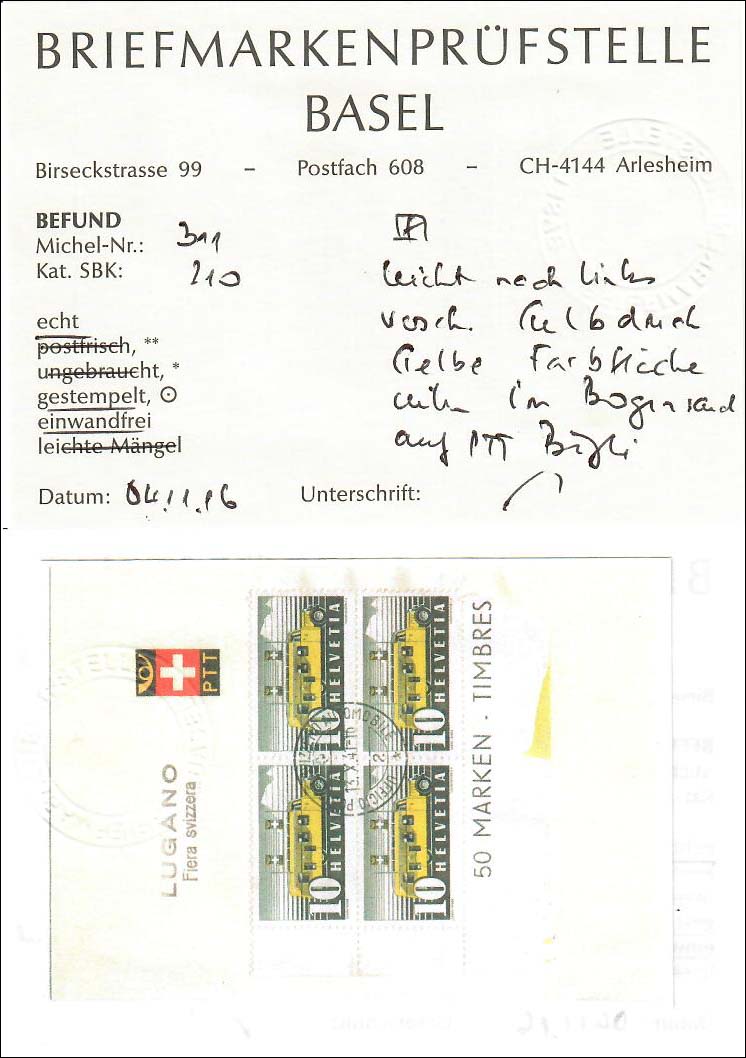 BRIEFMARKENPRÜFSTELLE
BASEL
Birseckstrasse 99 – Postfach 608 – CH-4144 Arlesheim
BEFUND
Michel-Nr.: 311
Kat. SBK: 210
echt
postfrisch, **
ungebraucht, *
gestempelt, ⊙
einwandfrei
leichte Mängel
leicht nach links
versch. Gelbdruck
Gelbe Farbfläche
im Bogenrand
auf PTT
Datum: 04.11.16 Unterschrift:
PTT
LUGANO
Fiera svizzera
HELVETIA
10
HELVETIA
10
HELVETIA
10
HELVETIA
10
50 MARKEN · TIMBRES